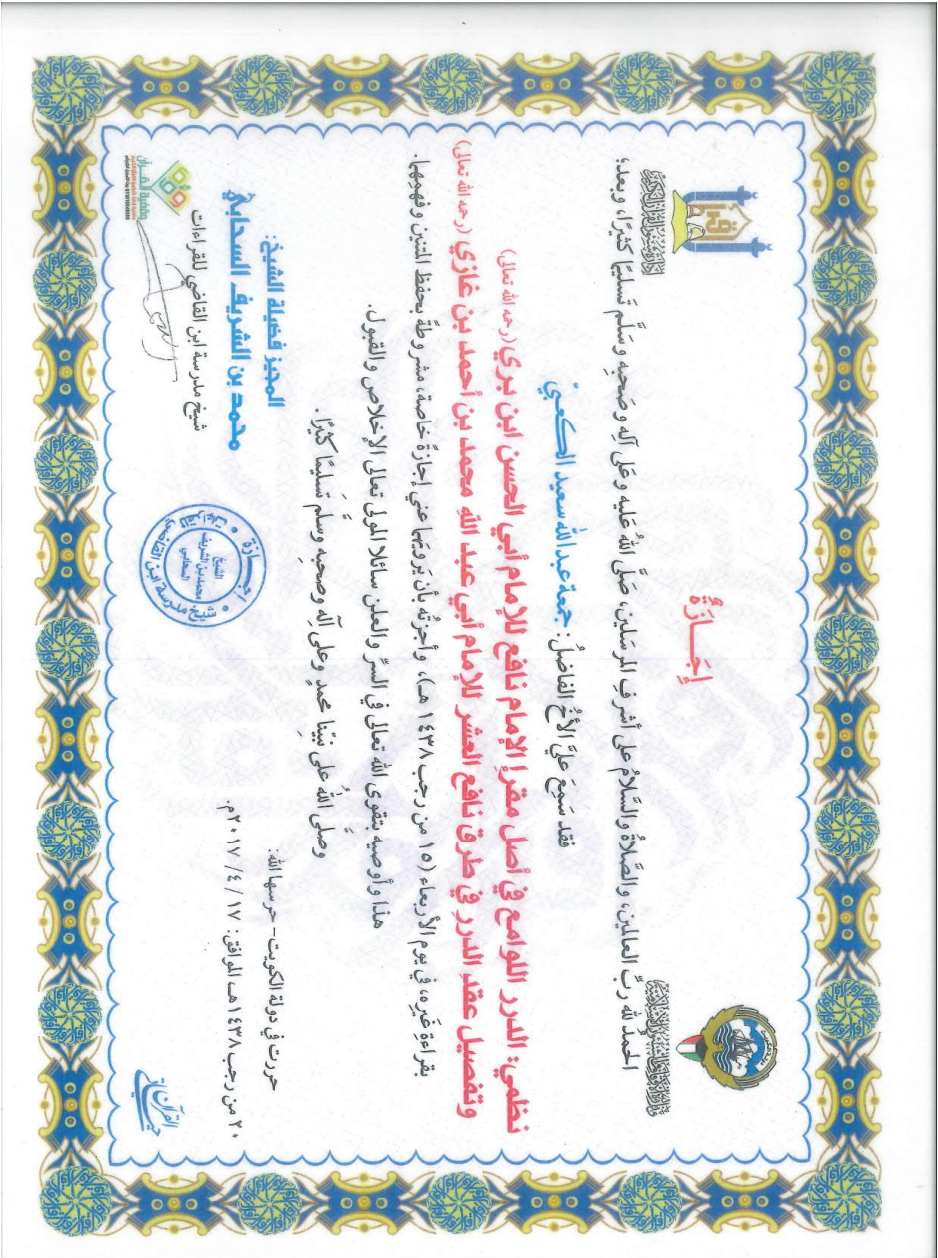 إِجَـــازَةٌ
الحمدُ لله ربِّ العالمين، والصَّلاةُ والسَّلامُ على أشرفِ المرسَلين، صَلَّى اللهُ عَليه وعَلى آلِه وصَحبِه وسَلَّم تَسليمًا كثيرًا، وبعد؛
فقد سَمِعَ عليَّ الأخُ الفاضلُ: جمعة عبدالله سعيد الكعبي
نظمي: الدرر اللوامع في أصل مقرإ الإمام نافع للإمام أبي الحسن ابن بري (رحمه الله تعالى)
وتفصيل عقد الدرر في طرق نافع العشر للإمام أبي عبد الله محمد بن أحمد بن غازي (رحمه الله تعالى)
بقراءةِ غَيرِه، في يوم الأربعاء (١٥ من رجب ١٤٣٨ هـ)، وأجزتُه بأن يَرويَهما عني إجازةً خاصة، مشروطةً بحفظ المتنين وفهمهما.
هذا وأوصيه بتقوى الله تعالى في السرِّ والعلن سائلا المولى تعالى الإخلاص والقبول.
وصلَّى اللهُ على نبيِّنا محمدٍ وعلى آلِه وصحبِه وسلَّم تَسليمًا كثيرًا.
حررت في دولة الكويت - حرسها الله:
٢٠ من رجب ١٤٣٨هـ، الموافق: ١٧ / ٤ / ٢٠١٧م.
المجيز فضيلة الشيخ:
محمد بن الشريف السحابي
شيخ مدرسة ابن القاضي للقراءات
إجازة
الشيخ
محمد بن الشريف
السحابي